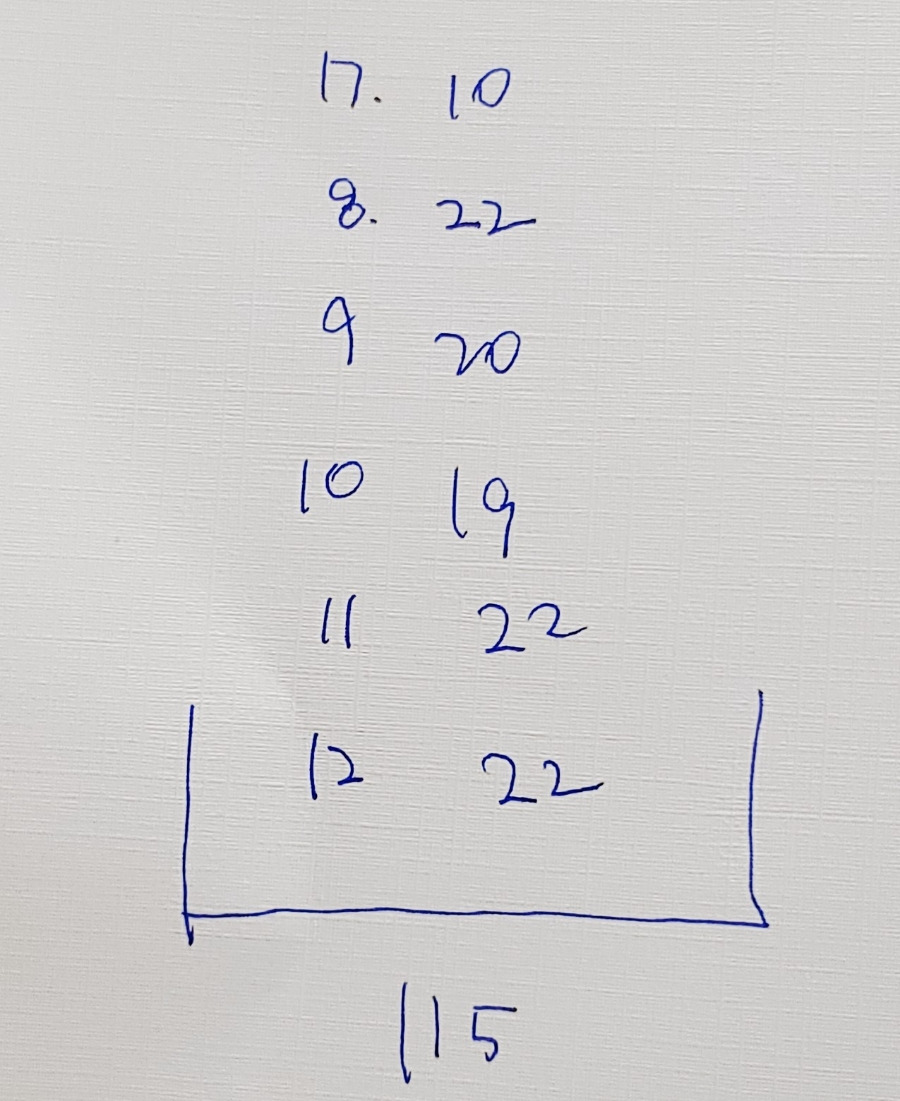 17. 10
8. 22
9 20
10 19
11 22
12 22
115